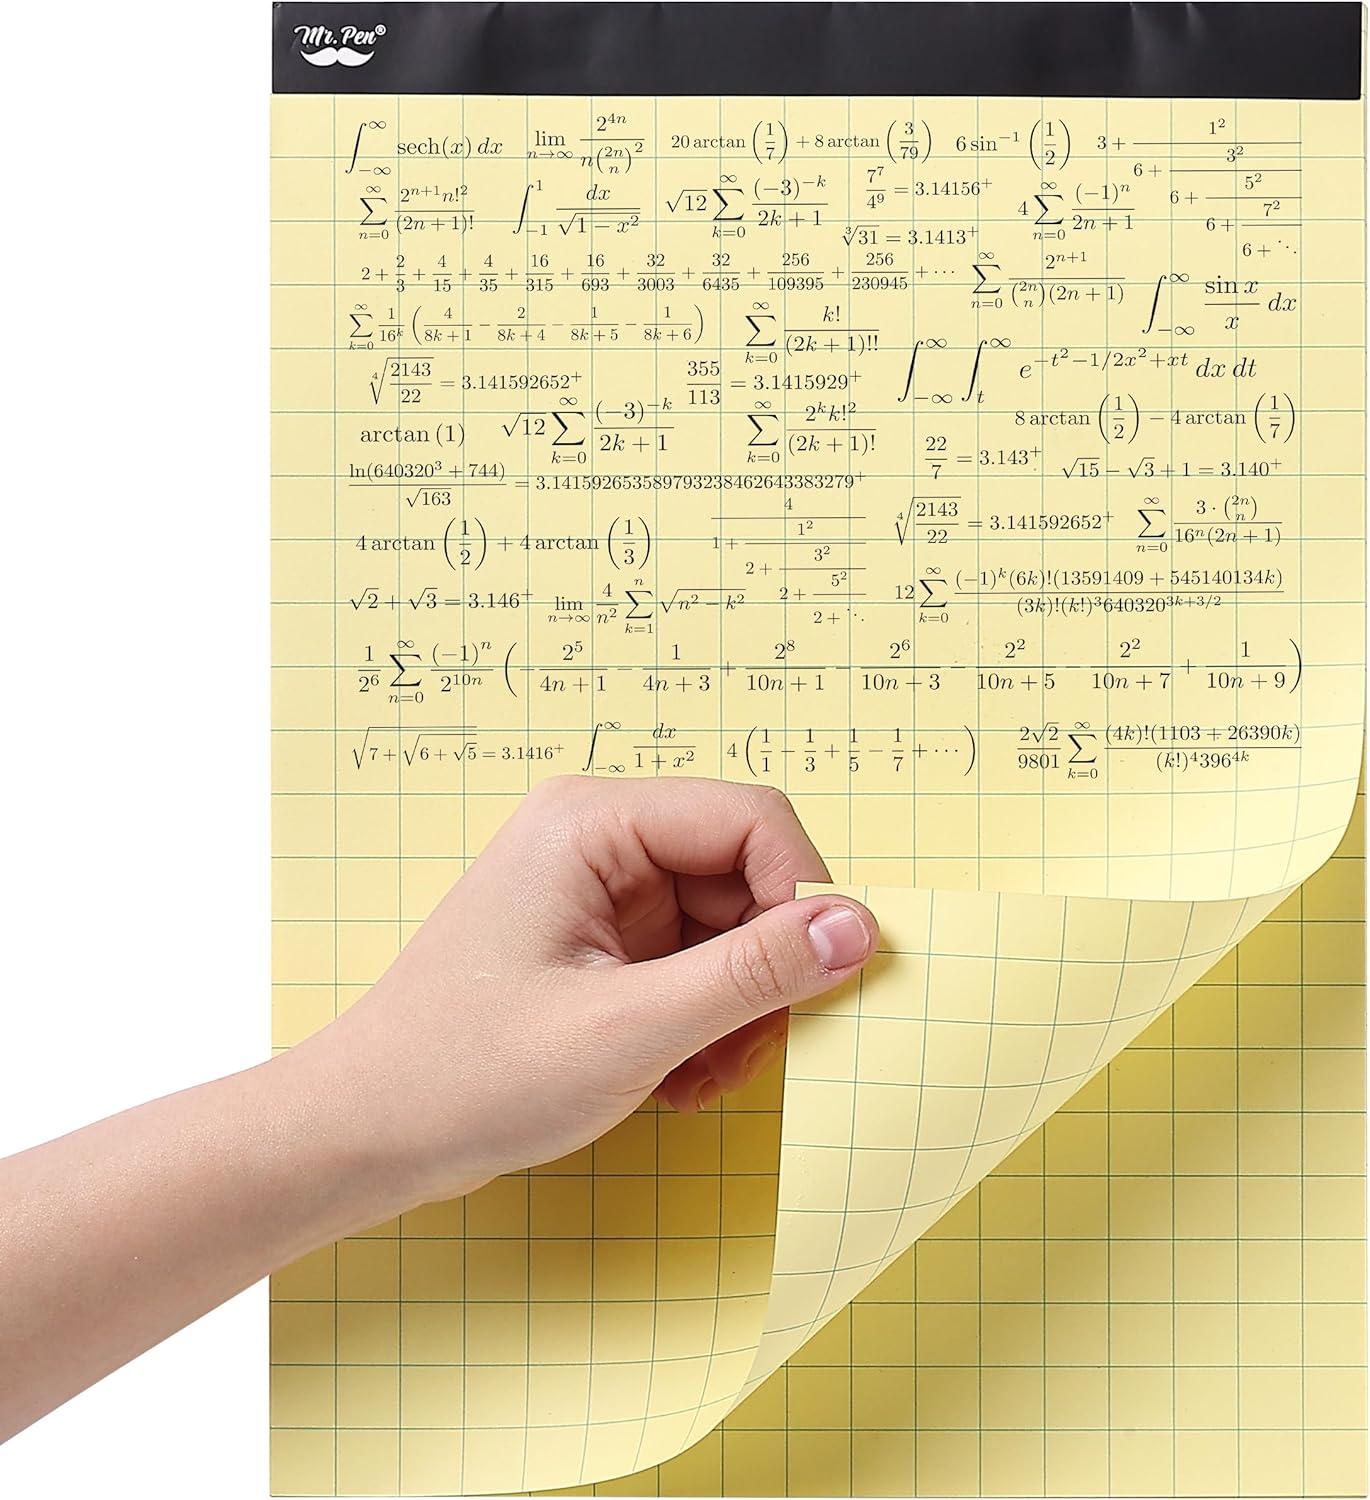 Mr. Pen®
∫_{-∞}^{∞} sech(x) dx   lim_{n→∞} 2^{4n} / (n \binom{2n}{n}^2)   20 arctan(1/7) + 8 arctan(3/79)   6 sin^{-1}(1/2)   3 + 1²/(6 + 3²/(6 + 5²/(6 + 7²/(6 + ⋱))))
∑_{n=0}^{∞} 2^{n+1} n!² / (2n+1)!   ∫_{-1}^{1} dx / √(1 − x²)   √12 ∑_{k=0}^{∞} (−3)^{−k} / (2k+1)   7^7/4^9 = 3.14156⁺   4 ∑_{n=0}^{∞} (−1)^n / (2n+1)
∛31 = 3.1413⁺
2 + 2/3 + 4/15 + 4/35 + 16/315 + 16/693 + 32/3003 + 32/6435 + 256/109395 + 256/230945 + ⋯   ∑_{n=0}^{∞} 2^{n+1} / (\binom{2n}{n}(2n+1))   ∫_{-∞}^{∞} (sin x / x) dx
∑_{k=0}^{∞} 1/16^k (4/(8k+1) − 2/(8k+4) − 1/(8k+5) − 1/(8k+6))   ∑_{k=0}^{∞} k! / (2k+1)!!   ∫_{-∞}^{∞} ∫_{t}^{∞} e^{−t²−1/2x²+xt} dx dt
∜(2143/22) = 3.141592652⁺   355/113 = 3.1415929⁺
arctan(1)   √12 ∑_{k=0}^{∞} (−3)^{−k} / (2k+1)   ∑_{k=0}^{∞} 2^k k!² / (2k+1)!   8 arctan(1/2) − 4 arctan(1/7)
22/7 = 3.143⁺   √15 − √3 + 1 = 3.140⁺
ln(640320³ + 744) / √163 = 3.14159265358979323846264338 3279⁺
4 arctan(1/2) + 4 arctan(1/3)   4/(1 + 1²/(2 + 3²/(2 + 5²/(2 + ⋱))))   ∜(2143/22) = 3.141592652⁺   ∑_{n=0}^{∞} 3 · \binom{2n}{n} / (16^n(2n+1))
√2 + √3 = 3.146⁺   lim_{n→∞} 4/n² ∑_{k=1}^{n} √(n² − k²)   12 ∑_{k=0}^{∞} (−1)^k(6k)!(13591409 + 545140134k) / ((3k)!(k!)³640320^{3k+3/2})
1/2⁶ ∑_{n=0}^{∞} (−1)^n/2^{10n} (−2⁵/(4n+1) − 1/(4n+3) + 2⁸/(10n+1) − 2⁶/(10n+3) − 2²/(10n+5) − 2²/(10n+7) + 1/(10n+9))
√(7 + √(6 + √5)) = 3.1416⁺   ∫_{-∞}^{∞} dx / (1 + x²)   4(1/1 − 1/3 + 1/5 − 1/7 + ⋯)   2√2/9801 ∑_{k=0}^{∞} (4k)!(1103 + 26390k) / ((k!)⁴396^{4k})